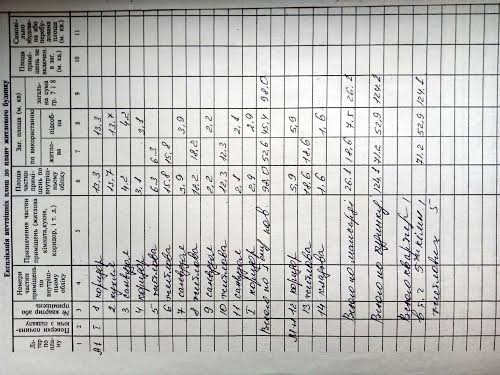 Експлікація внутрішніх площ до плану житлового будинку
Літер по плану | Поверхи починаючи з підвалу | № квартир або приміщень | Номери частин приміщень по внутрішньому обліку | Призначення частин приміщень (житлова кімната, кухня, коридор, і т. д.) | Площа частин приміщень по внутрішньому обліку | Заг. площа (м. кв) по використанню | житлова | підсобна | загальна сума гр. 7 і 8 | Площа приміщень не включен. в заг. (м. кв.) | Самовільно збудована або перебудована площа (м. кв.)
1 2 3 4 5 6 7 8 9 10 11
1 коридор 13,3 13,3
2 кухня 13,7 13,7
3 санвузол 4.2 4,2
4 коридор 3,1 3,1
5 житлова 6.3 6.3
6 житлова 15,8 15,8
7 санвузол 3,9 3,9
8 житлова 18.2 18.2
9 санвузол 2,2 2,2
10 житлова 12,3 12,3
11 санвузол 2,1 2,1
I коридор 2.9 2.9
Всього по I пов. 98.0 52.6 45.4 98.0
12 коридор 5,9 5,9
13 житлова 18.6 18.6
14 1.6 1.6
Всього по мансарді 26.1 18.6 7.5 26.1
Всього по будинку 124.1 71.2 52.9 124.1
Всього квартир 1
71.2 52.9 124.1
житлових 5